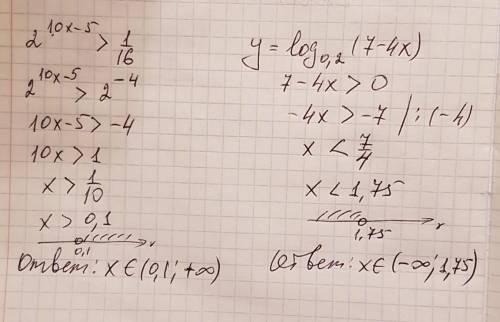 2^{10x-5} > \frac{1}{16}
2^{10x-5} > 2^{-4}
10x-5 > -4
10x > 1
x > \frac{1}{10}
x > 0,1
0,1 x
Ответ: x ∈ (0,1; +∞)
y = log_{0,2} (7-4x)
7-4x > 0
-4x > -7 | :(-4)
x < \frac{7}{4}
x < 1,75
1,75 x
Ответ: x ∈ (-∞; 1,75)